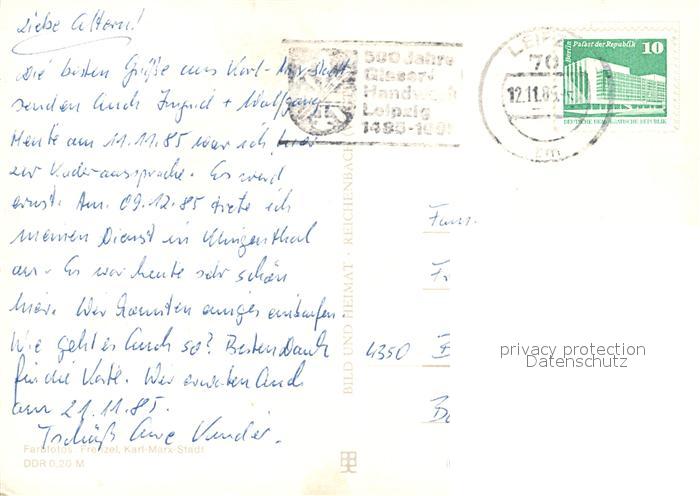 Liebe Eltern!
Die besten Grüße aus Karl-Marx-Stadt
senden Euch Ingrid + Wolfgang
Heute am 11.11.85 war ich hier
zur Kaderaussprache. Es wird
ernst. Am 09.12.85 trete ich
meinen Dienst in Klingenthal
an. Es war heute sehr schön
hier. Wir konnten einiges einkaufen.
Wie geht es Euch so? Besten Dank
für die Karte. Wir erwarten Euch
am 21.11.85.
Tschüß Eure Kinder.
Farbfotos: Frenzel, Karl-Marx-Stadt
DDR 0,20 M
BILD UND HEIMAT · REICHENBACH
500 Jahre
Glaser-
Handwerk
Leipzig
LEIPZ
70
12.11.85
Berlin Palast der Republik 10
DEUTSCHE DEMOKRATISCHE REPUBLIK
Fam.
4350
privacy protection
Datenschutz